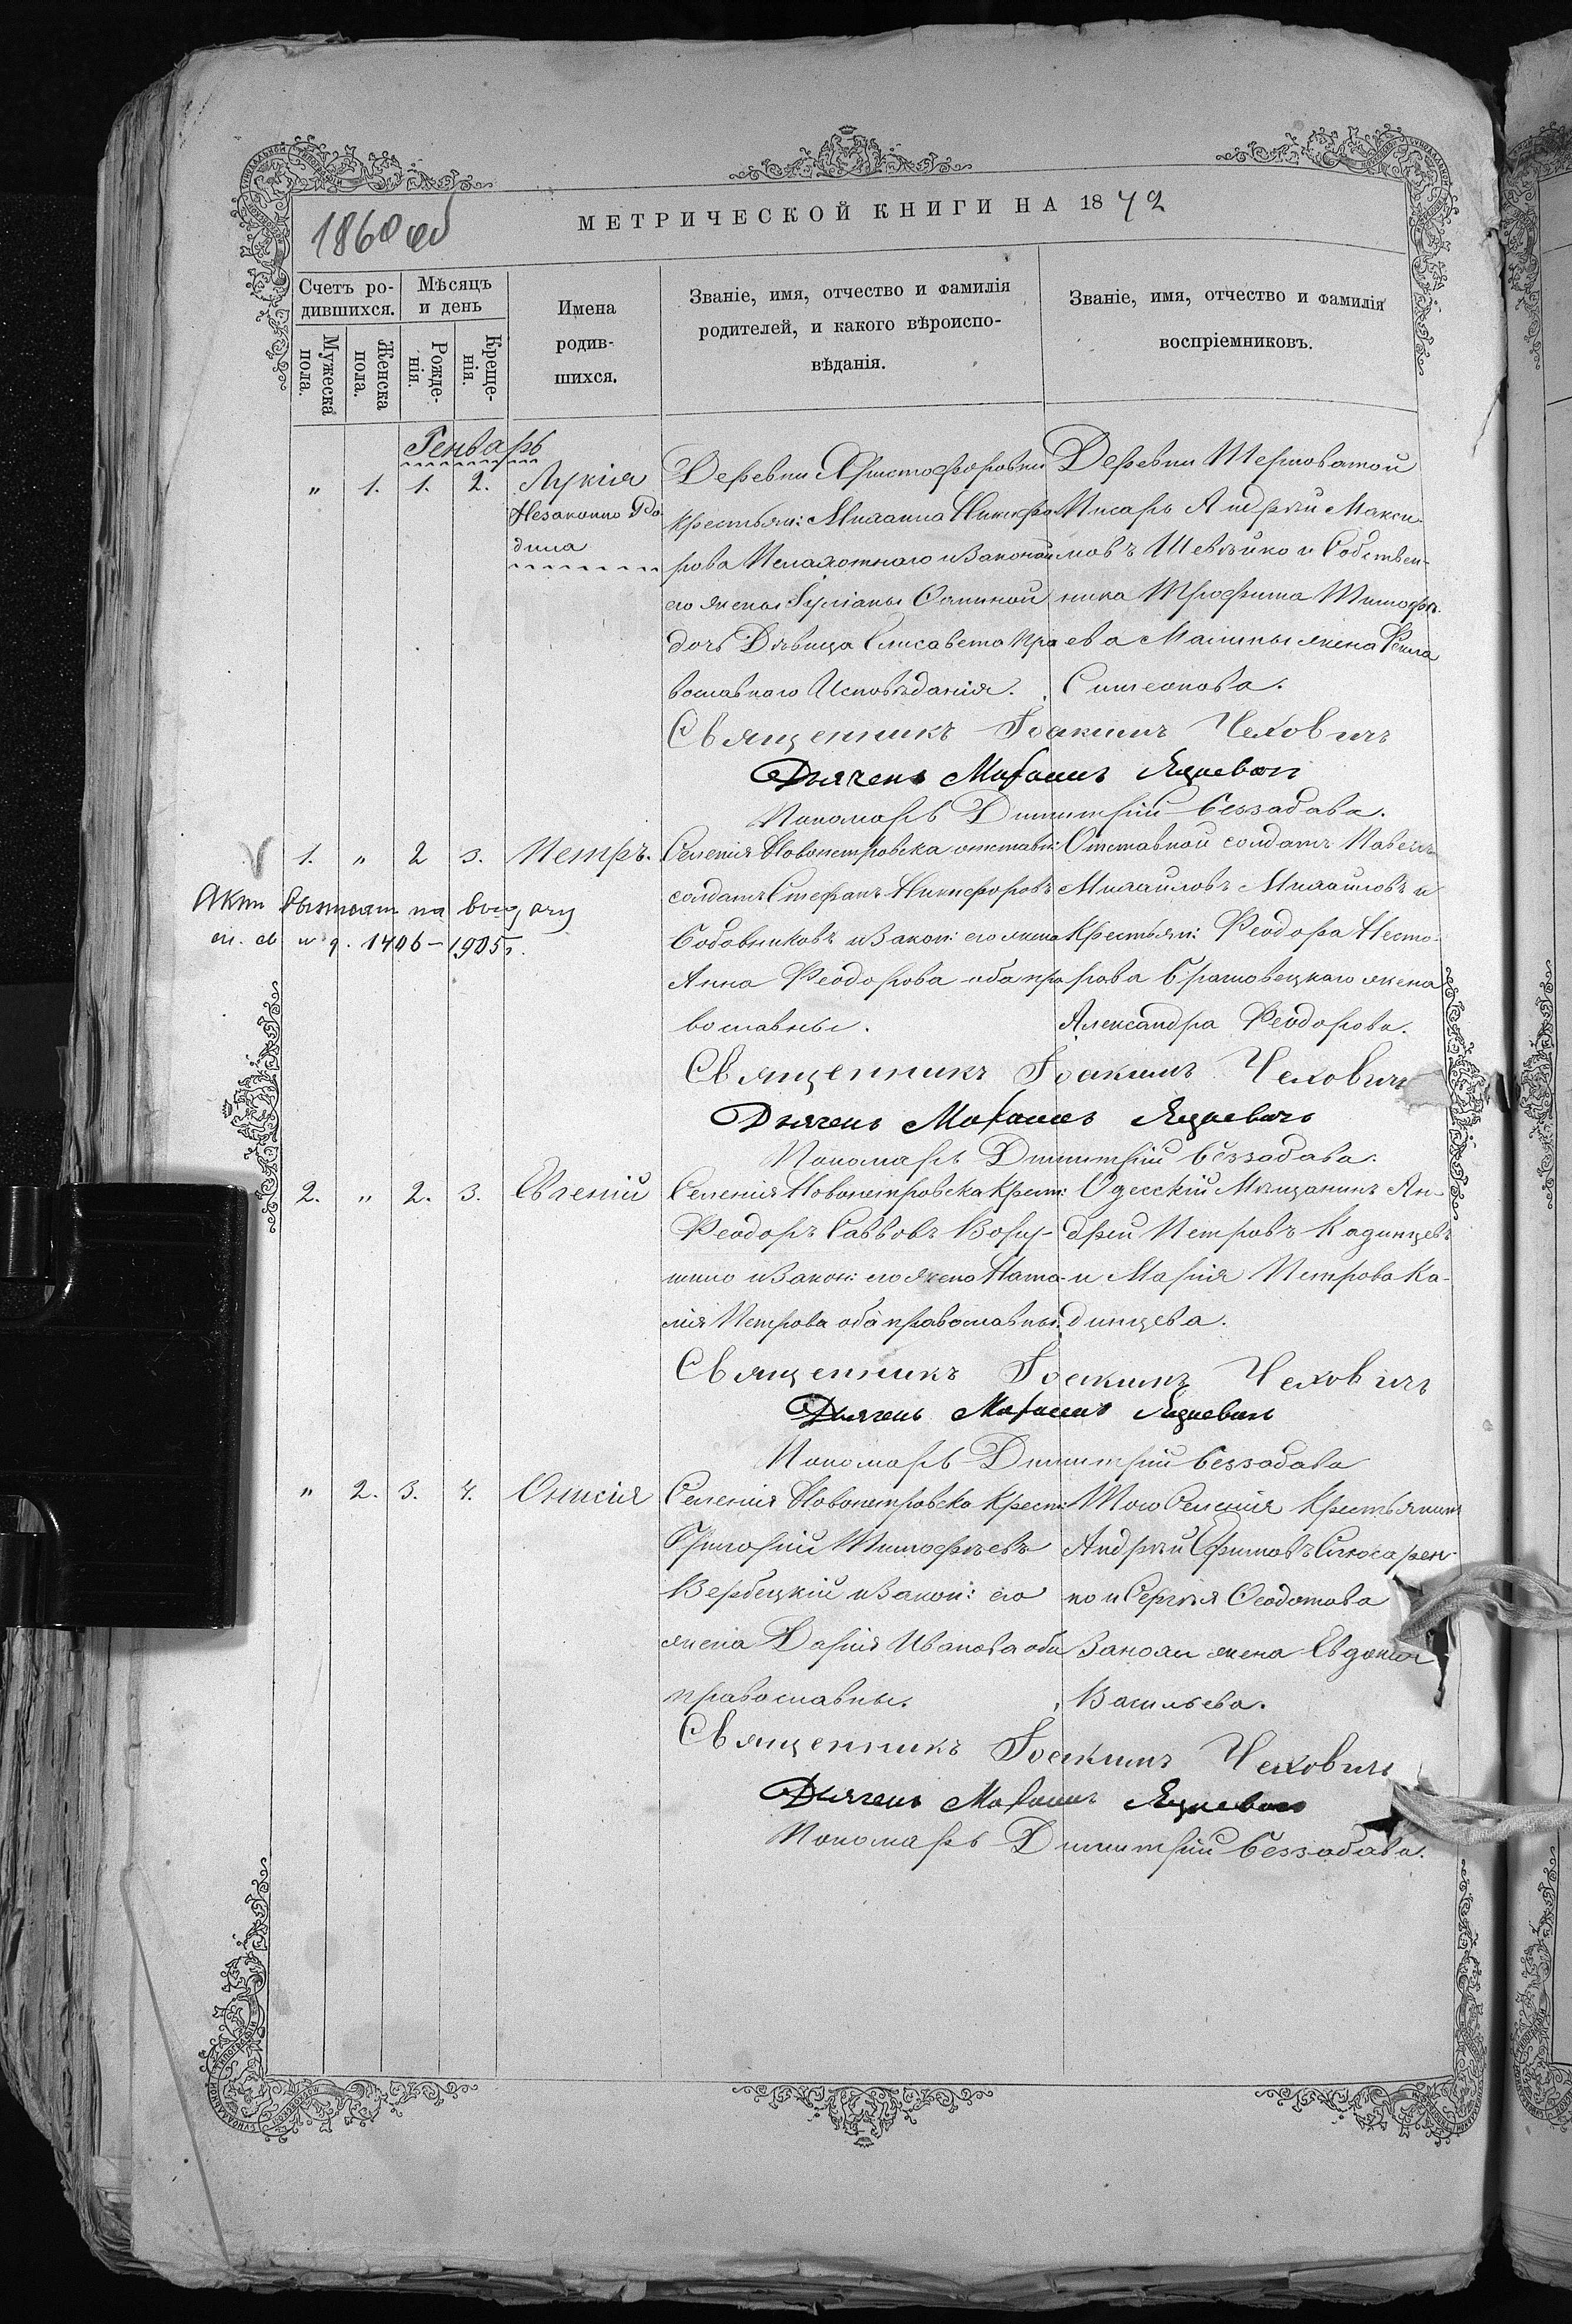 1860 об
МЕТРИЧЕСКОЙ КНИГИ НА 1872
Счетъ ро-
дившихся.
Мѣсяцъ
и день
Мужеска
пола.
Женска
пола.
Рожде-
нія.
Креще-
нія.
Имена
родив-
шихся.
Званіе, имя, отчество и фамилія
родителей, и какого вѣроиспо-
вѣданія.
Званіе, имя, отчество и фамилія
воспріемниковъ.
Генварь
" 1. 1. 2. Лукія
Незаконно Ро
дила
Деревни Христофоровки
крестьян: Михаила Никифо
рова и Законой
его жены Іуліаны Осиповой
дочь Дѣвица Елисавета пра
вославного Исповѣданія.
Деревни Щербоватой
Писарь Андрѣй Макси-
мовъ Шевчуко и Собствен-
ника Трофима Тимофѣ-
ева жена
Симеонова.
Священникъ Іоакимъ Чеховичъ
Дьячекъ Мафтей Яцкевичъ
Пономарь Димитрій Беззабава.
1. " 2 3. Петръ.
Селенія Новопетровска отставн:
солдатъ Стефанъ Никифоровъ
и Закон: его жена
Анна Феодорова оба пра
вославные.
Отставной солдатъ Павелъ
Михаиловъ Михаиловъ и
Крестьян: Феодора Несто-
рова Братовецкаго жена
Александра Феодорова.
Акт выписан на выдачу
1406-1905 г.
Священникъ Іоакимъ Чеховичъ
Дьячекъ Мафтей Яцкевичъ
Пономарь Димитрій Беззабава.
2. " 2. 3. Евгеній
Селенія Новопетровска Крест:
Феодоръ Саввовъ
и Закон: его жена Ната-
лія Петрова оба православные.
Одесскій Мѣщанинъ Ан-
дрей Петровъ Кадинцевъ
и Марія Петрова Ка-
динцева.
Священникъ Іоакимъ Чеховичъ
Дьячекъ Мафтей Яцкевичъ
Пономарь Димитрій Беззабава
" 2. 3. 4. Онисія
Селенія Новопетровска Крест:
Григорій Тимофѣевъ
Вербецкій и Закон: его
жена Дарія Иванова оба
православные.
Того Селенія Крестьянинъ
Андрѣй Ефимовъ Слюсарен-
ко и Сергѣя Феодотова
жена Евдокія
Васильева.
Священникъ Іоакимъ Чеховичъ
Дьячекъ Мафтей Яцкевичъ
Пономарь Димитрій Беззабава.